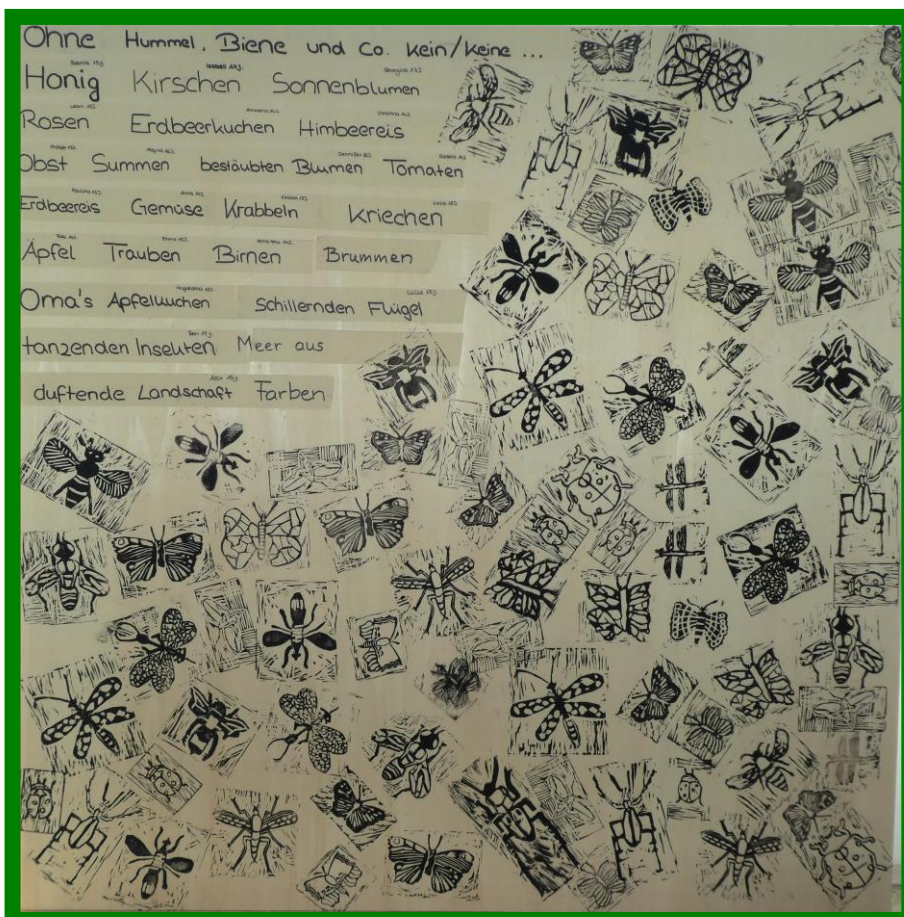 Ohne Hummel, Biene und Co. kein/keine ...
Honig Kirschen Sonnenblumen
Rosen Erdbeerkuchen Himbeereis
Obst Summen bestäubten Blumen Tomaten
Erdbeereis Gemüse Krabbeln kriechen
Äpfel Trauben Birnen Brummen
Oma's Apfelkuchen schillernden Flügel
tanzenden Insekten Meer aus
duftende Landschaft Farben